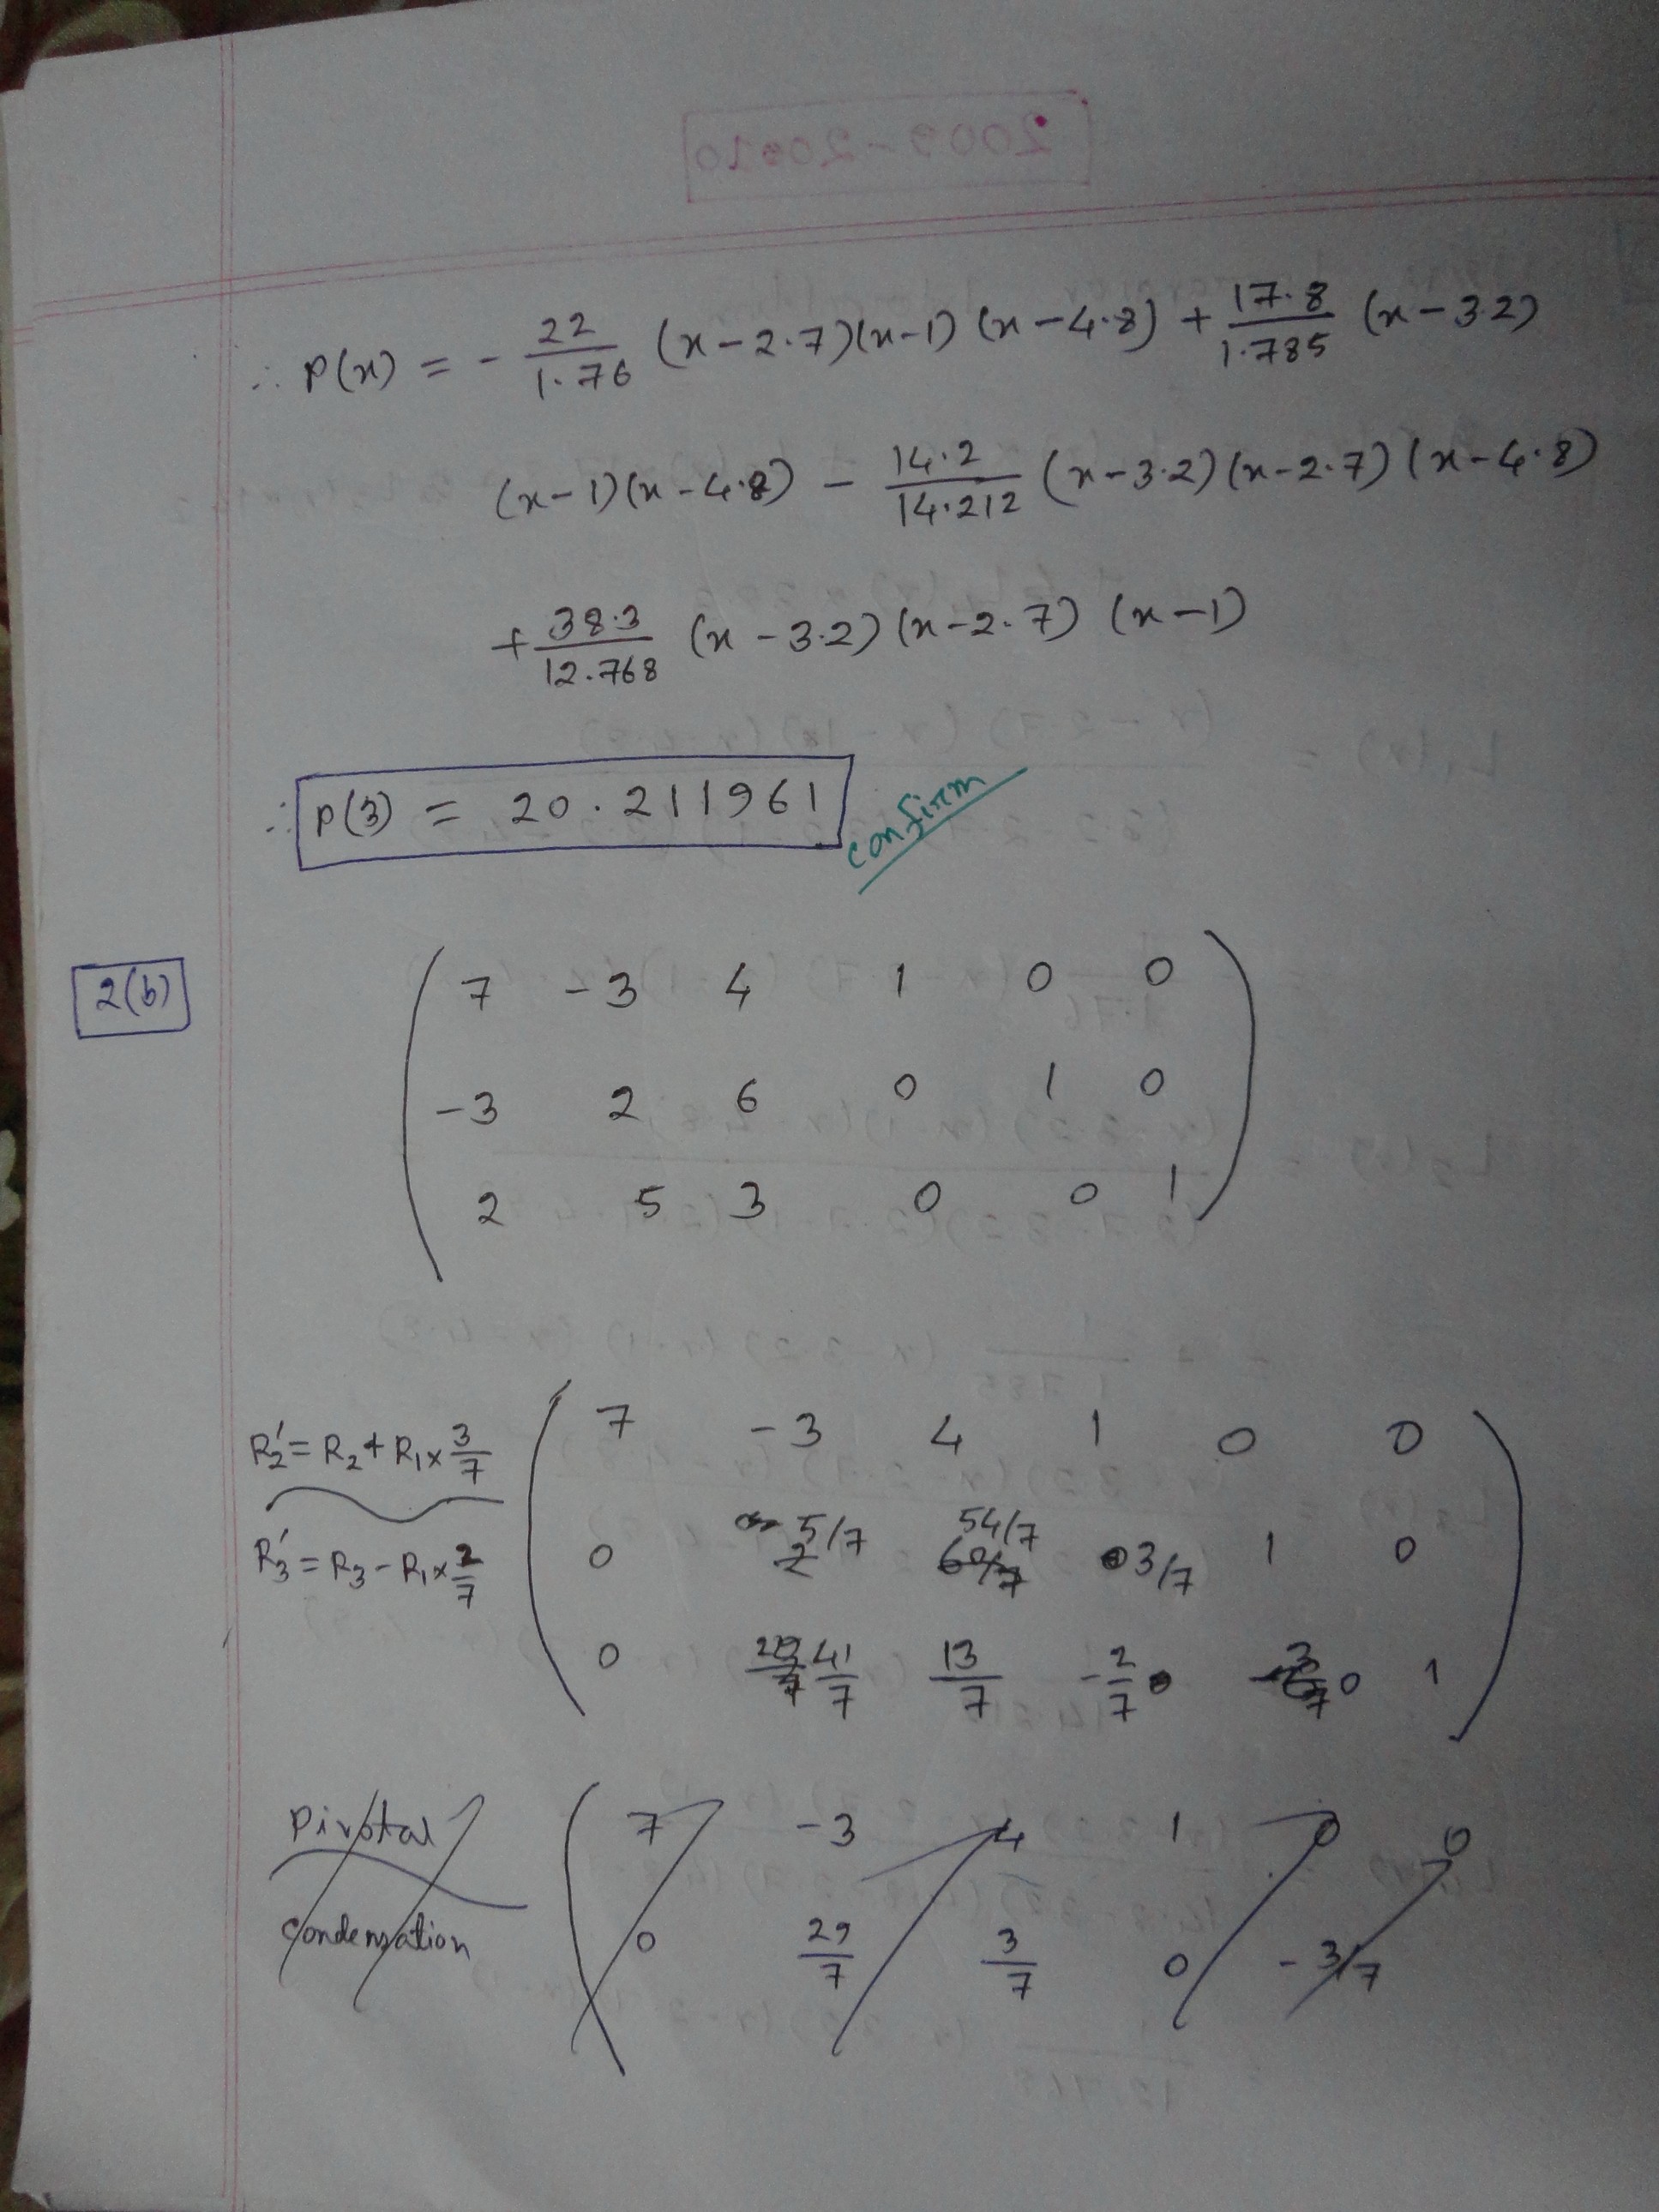 ∴ P(x) = - 22/1.76 (x-2.7)(x-1) (x-4.8) + 17.8/1.785 (x-3.2)
(x-1)(x-4.8) - 14.2/14.212 (x-3.2)(x-2.7)(x-4.8)
+ 38.3/12.768 (x-3.2)(x-2.7) (x-1)
∴ P(3) = 20.211961 confirm
2(b)
7 -3 4 1 0 0
-3 2 6 0 1 0
2 5 3 0 0 1
R₂' = R₂ + R₁ × 3/7
R₃' = R₃ - R₁ × 2/7
7 -3 4 1 0 0
0 5/7 54/7 3/7 1 0
0 41/7 13/7 -2/7 0 1
Pivotal
Condensation
7 -3 4 1 0 0
0 29/7 3/7 0 -3/7